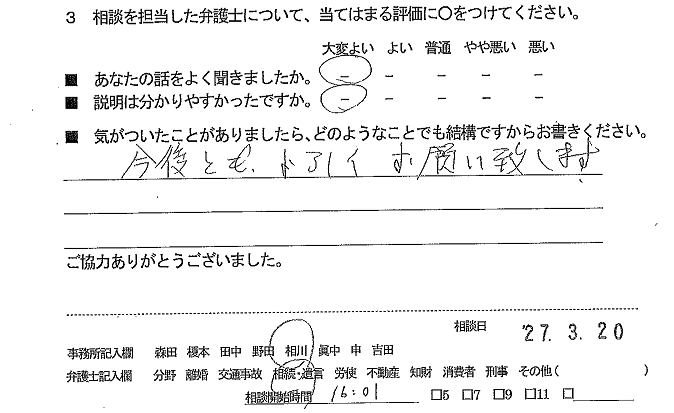 3 相談を担当した弁護士について、当てはまる評価に○をつけてください。
大変よい よい 普通 やや悪い 悪い
■ あなたの話をよく聞きましたか。 － － － － －
■ 説明は分かりやすかったですか。 － － － － －
■ 気がついたことがありましたら、どのようなことでも結構ですからお書きください。
今後とも、よろしくお願い致します
ご協力ありがとうございました。
相談日 '27. 3. 20
事務所記入欄 森田 榎本 田中 野田 相川 眞中 申 吉田
弁護士記入欄 分野 離婚 交通事故 相続・遺言 労使 不動産 知財 消費者 刑事 その他( )
相談開始時間 16:01 □5 □7 □9 □11 □